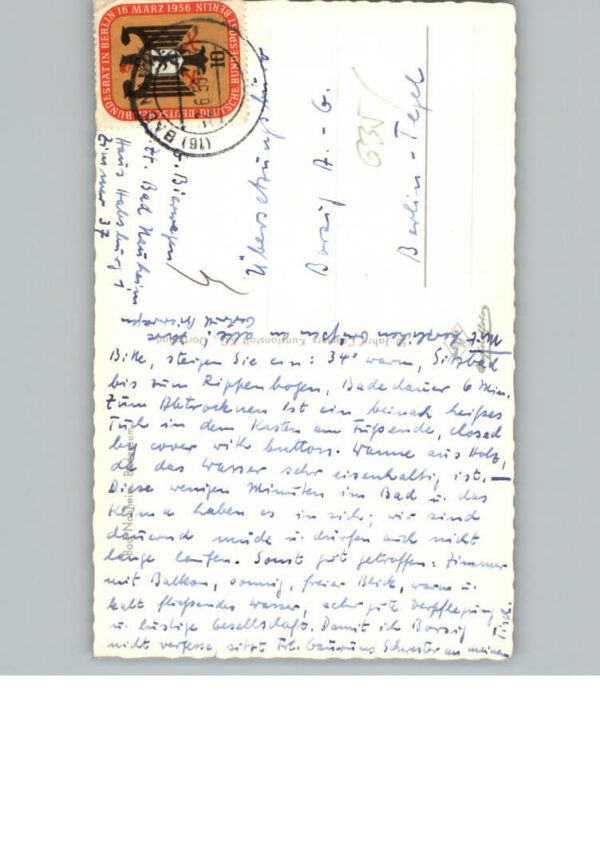 BUNDESRAT IN BERLIN 16 MÄRZ 1956
DEUTSCHE BUNDESPOST BERLIN
10
(16) BAD
Bierwagen
Bad Nauheim
Haus Habsburg
Zimmer 37
Borsig A.-G.
Berlin-Tegel
635
Mit herzlichen Grüßen an alle
Bitte, steigen Sie ein: 34° warm, Sitzbad
bis zum Rippenbogen, Badedauer 6 Min.
Zum Abtrocknen ist ein beinah heißes
Tuch in dem Kasten am Fußende, closed
by cover with button. Wanne aus Holz,
da das Wasser sehr eisenhaltig ist. —
Diese wenigen Minuten im Bad u. das
Klima haben es in sich; wir sind
dauernd müde u. dürfen auch nicht
lange laufen. Sonst gut getroffen: Zimmer
mit Balkon, sonnig, freier Blick, warm u.
kalt fließendes Wasser, sehr gute Verpflegung
u. lustige Gesellschaft. Damit ich Borsig
nicht vergesse, sitzt Frl. Schwester an meinem
Tisch.